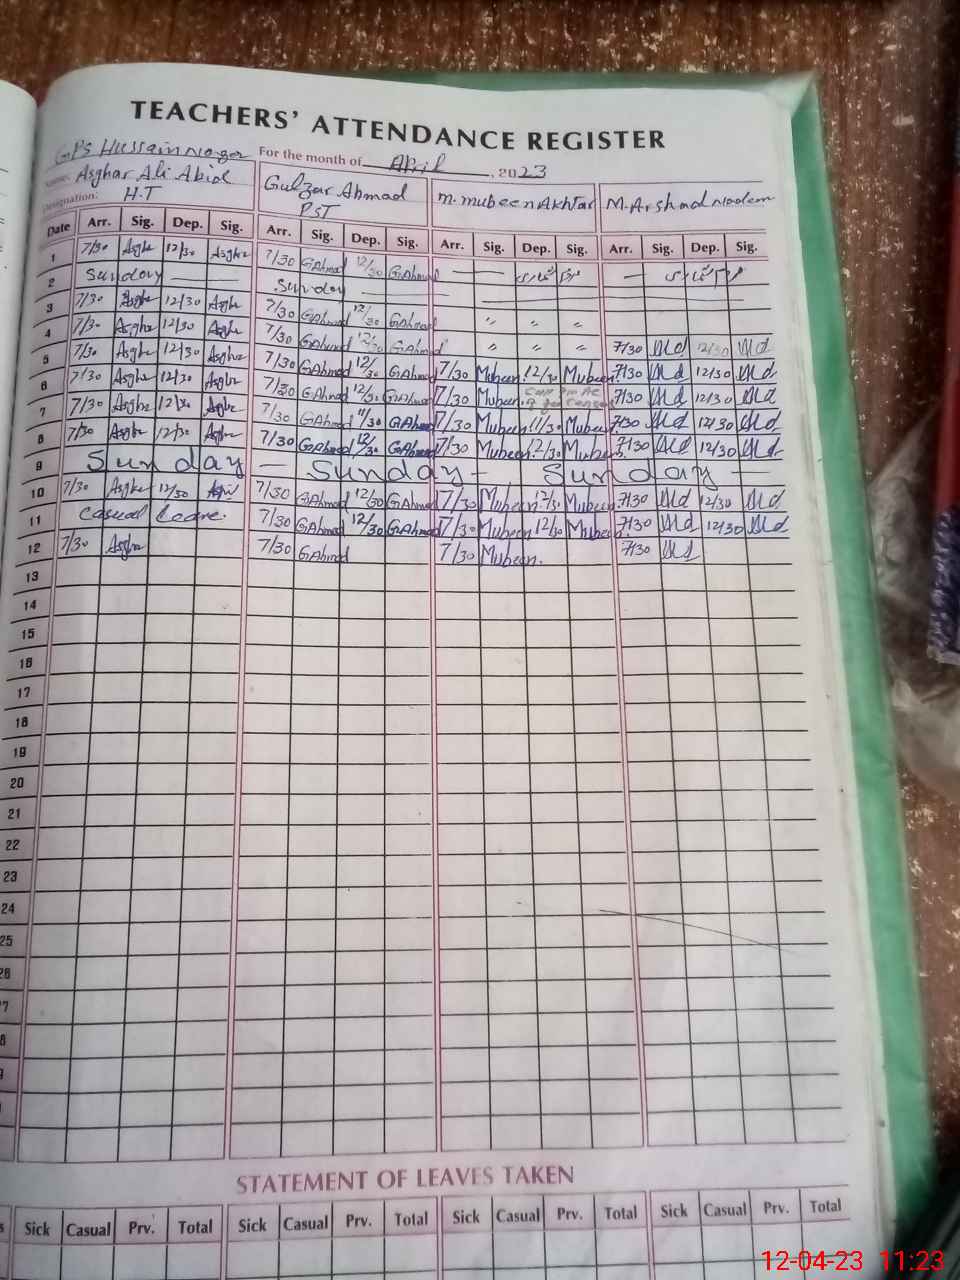 TEACHERS' ATTENDANCE REGISTER
GPS Hussain Nagar For the month of April, 2023
Name: Asghar Ali Abid Gulzar Ahmad M. Mubeen Akhtar M. Arshad Nadeem
Designation: H.T PST
Date Arr. Sig. Dep. Sig. Arr. Sig. Dep. Sig. Arr. Sig. Dep. Sig. Arr. Sig. Dep. Sig.
1 7/30 Asghr 12/30 Asghr 7/30 GAhmad 12/30 GAhmad
2 Sunday Sunday
3 7/30 Asghr 12/30 Asghr 7/30 GAhmad 12/30 GAhmad " " "
4 7/30 Asghr 12/30 Asghr 7/30 GAhmad 12/30 GAhmad " " " 7/30 12/30
5 7/30 Asghr 12/30 Asghr 7/30 GAhmad 12/30 GAhmad 7/30 Mubeen. 12/30 Mubeen. 7/30 12/30
6 7/30 Asghr 12/30 Asghr 7/30 GAhmad 12/30 GAhmad 7/30 Mubeen. 7/30 12/30
7 7/30 Asghr 12/30 Asghr 7/30 GAhmad 11/30 GAhmad 7/30 Mubeen 11/30 Mubeen 7/30 12/30
8 7/30 Asghr 12/30 Asghr 7/30 GAhmad 12/30 GAhmad 7/30 Mubeen 12/30 Mubeen. 7/30 12/30
9 Sunday — Sunday — Sunday —
10 7/30 Asghr 12/30 7/30 GAhmad 12/30 GAhmad 7/30 Mubeen. Mubeen. 7/30 12/30
11 Casual Leave. 7/30 GAhmad 12/30 GAhmad 7/30 Mubeen 12/30 Mubeen. 7/30 12/30
12 7/30 Asghr 7/30 GAhmad 7/30 Mubeen. 7/30
13
14
15
16
17
18
19
20
21
22
23
24
25
26
STATEMENT OF LEAVES TAKEN
Sick Casual Prv. Total Sick Casual Prv. Total Sick Casual Prv. Total Sick Casual Prv. Total
12-04-23 11:23